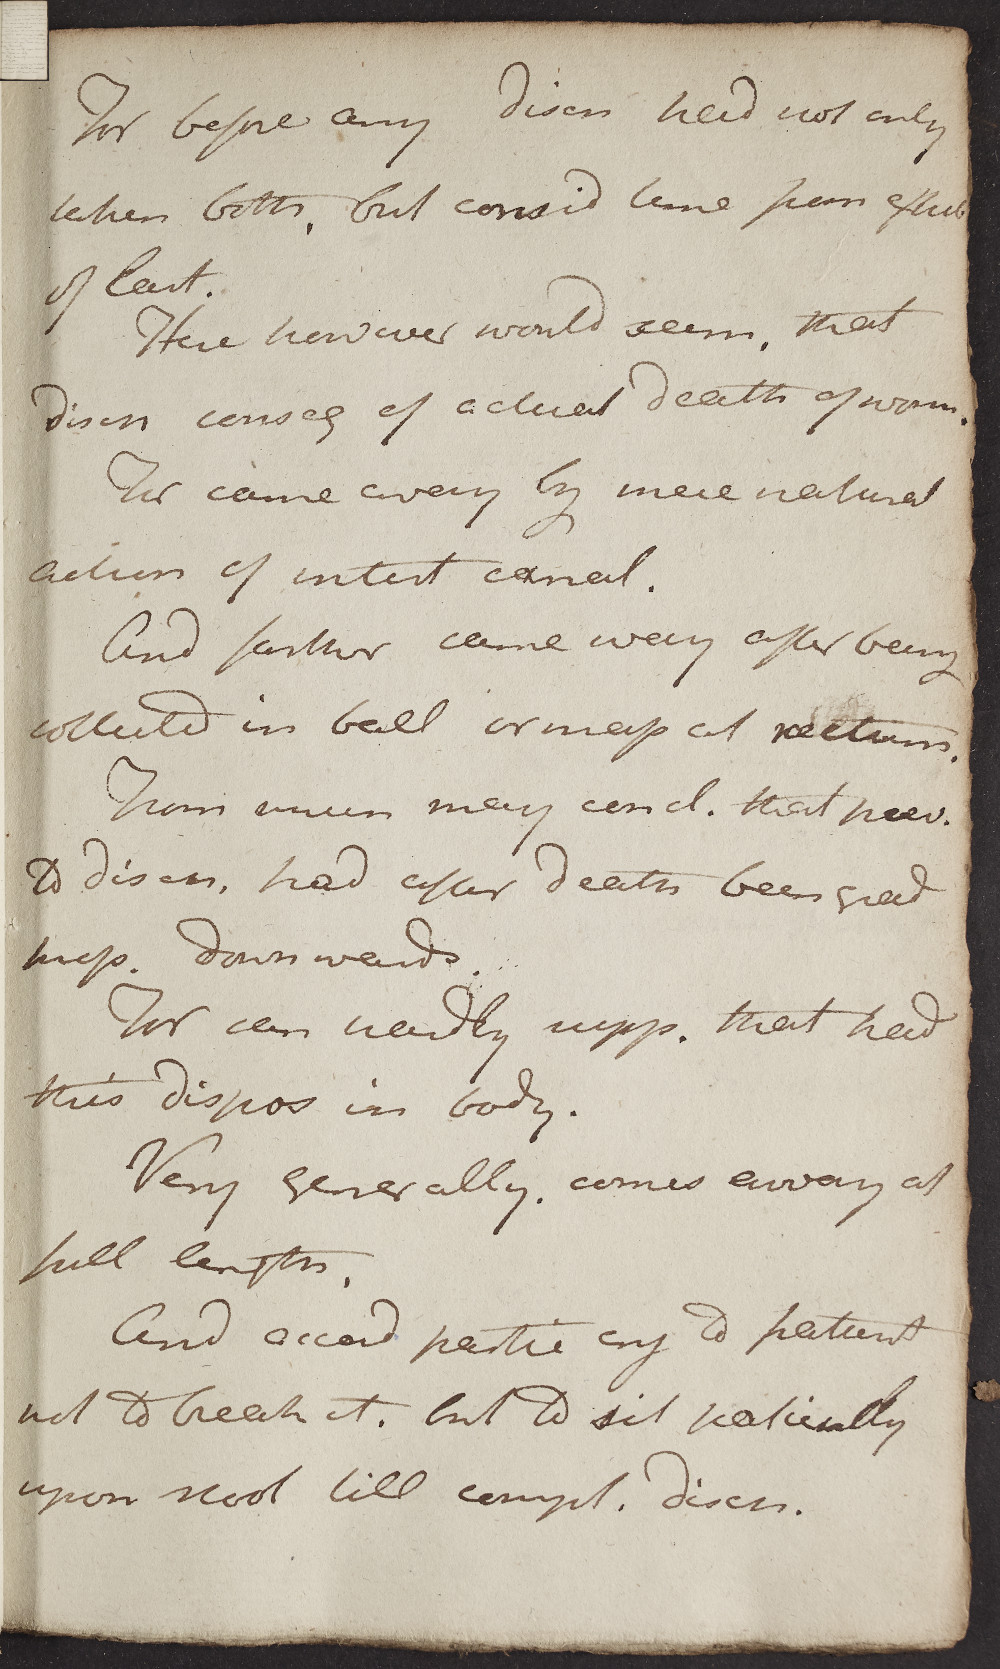 For before any disch had not only
taken both, but consid time from exhib
of last.
Here however would seem, that
disch conseq of actual death of worm.
For came away by mere natural
action of intest canal.
And farther came away after being
collected in ball or mass at rectum.
From whch may concl. that prev.
to disch, had after death been grad
prop. downwards.
For can hardly supp. that had
this dispos in body.
Very generally, comes away at
full length,
And accord partic inj to patient
not to break it. but to sit patiently
upon stool till compl. disch.